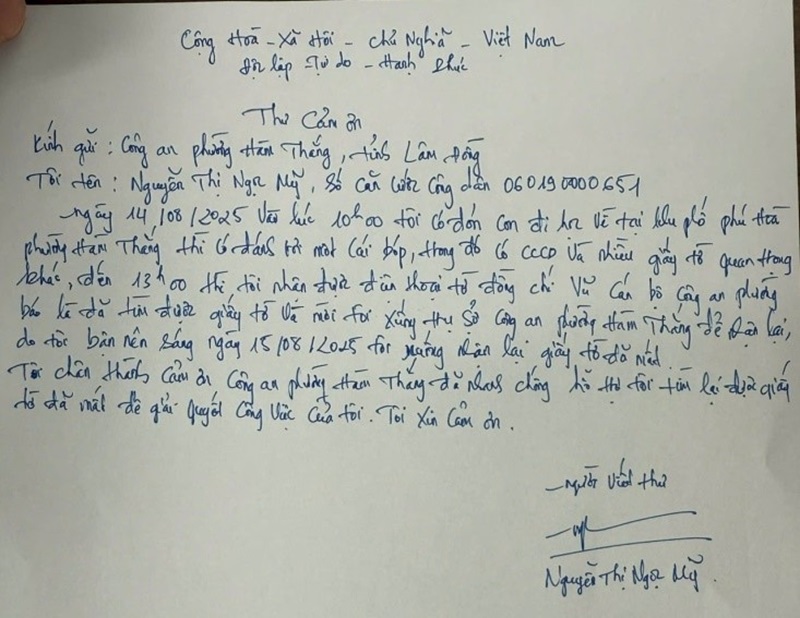 Cộng Hoà - Xã Hội - Chủ Nghĩa - Việt Nam
Độc lập - Tự do - Hạnh Phúc
Thư Cảm ơn
Kính gửi : Công an phường Hàm Thắng, tỉnh Lâm Đồng
Tôi tên : Nguyễn Thị Ngọc Mỹ, Số căn cước công dân 060190000651
ngày 14/08/2025 Vào lúc 10h00 tôi có đón con đi học về tại khu phố phú Hoà
phường Hàm Thắng thì có đánh rơi một cái bóp, trong đó có CCCD và nhiều giấy tờ quan trọng
khác, đến 13h00 thì tôi nhận được điện thoại từ đồng chí Vũ Cán bộ Công an phường
báo là đã tìm được giấy tờ và mời tôi xuống trụ sở Công an phường Hàm Thắng để nhận lại,
do tôi bận nên sáng ngày 15/08/2025 tôi xuống nhận lại giấy tờ đã mất.
Tôi chân thành cảm ơn Công an phường Hàm Thắng đã nhanh chóng hỗ trợ tôi tìm lại được giấy
tờ đã mất để giải quyết công việc của tôi. Tôi xin cảm ơn.
Người viết thư
Nguyễn Thị Ngọc Mỹ.